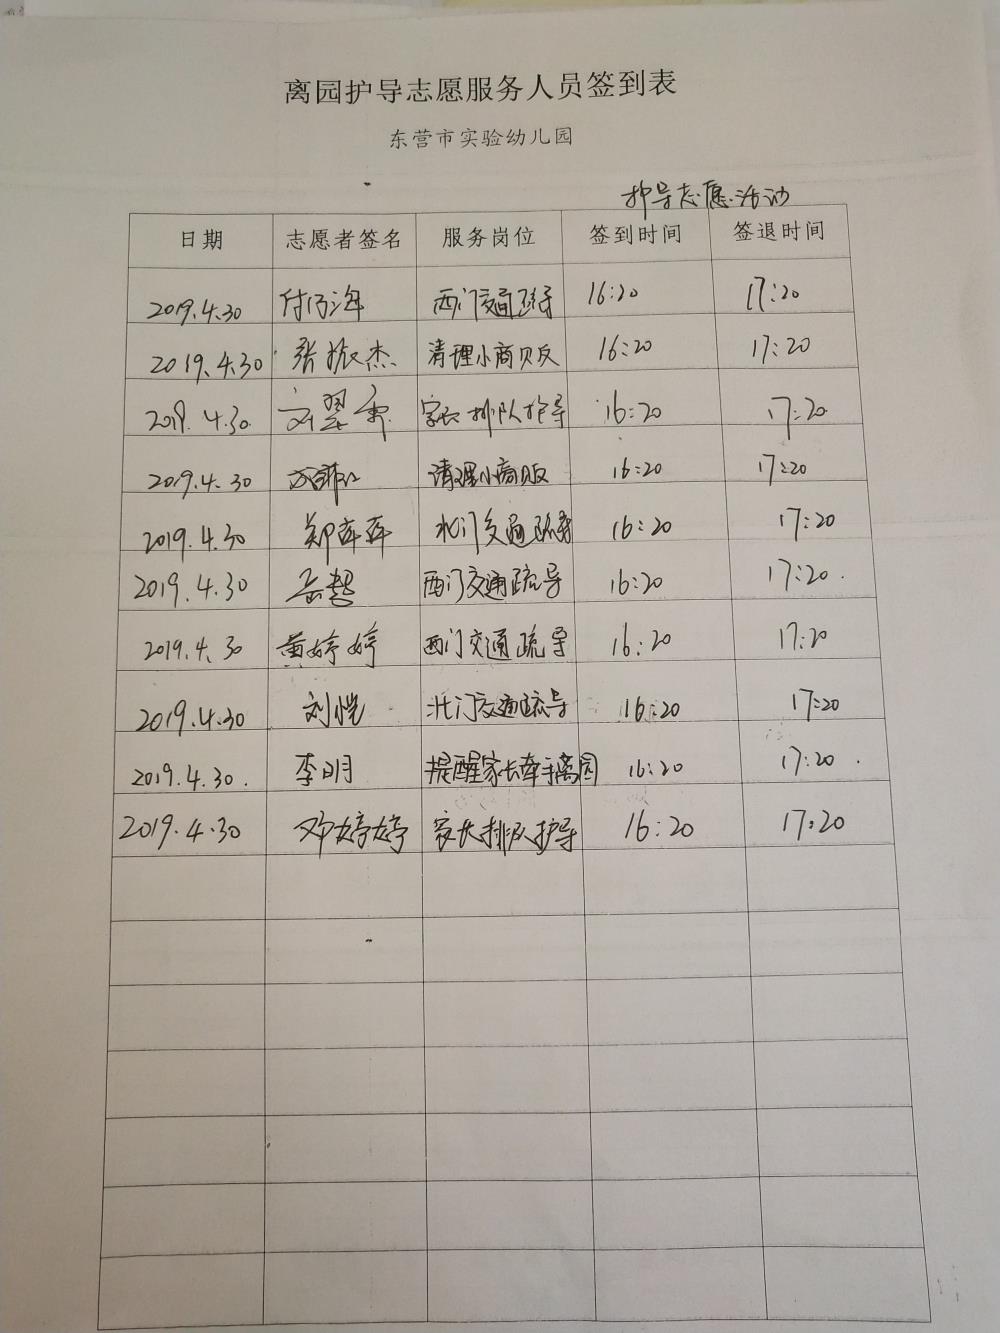 离园护导志愿服务人员签到表
东营市实验幼儿园
护导志愿活动
日期 志愿者签名 服务岗位 签到时间 签退时间
2019.4.30 西门交通疏导 16:20 17:20
2019.4.30 张振杰 清理小商贩 16:20 17:20
2019.4.30 家长排队护导 16:20 17:20
2019.4.30 清理小商贩 16:20 17:20
2019.4.30 郑萍萍 北门交通疏导 16:20 17:20
2019.4.30 岳慧 西门交通疏导 16:20 17:20.
2019.4.30 黄婷婷 西门交通疏导 16:20 17:20
2019.4.30 刘恺 北门交通疏导 16:20 17:20
2019.4.30. 李明 提醒家长牵手离园 16:20 17:20.
2019.4.30 邓婷婷 家长排队护导 16:20 17:20